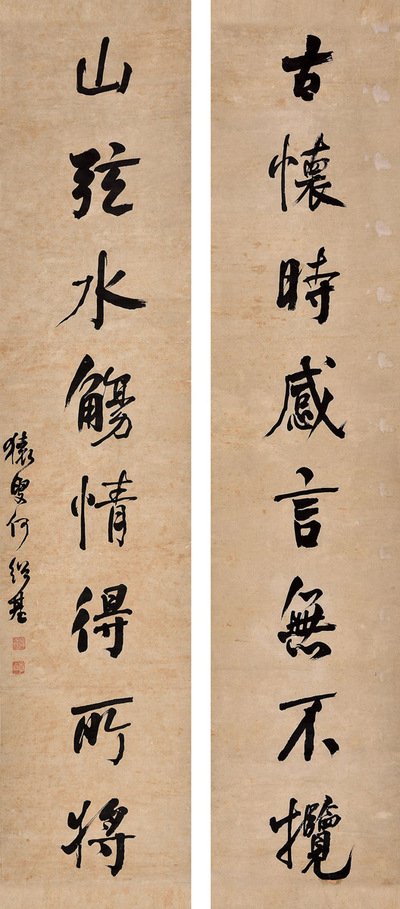 古懷時感言無不攬
山弦水觴情得所將
猿叟何紹基